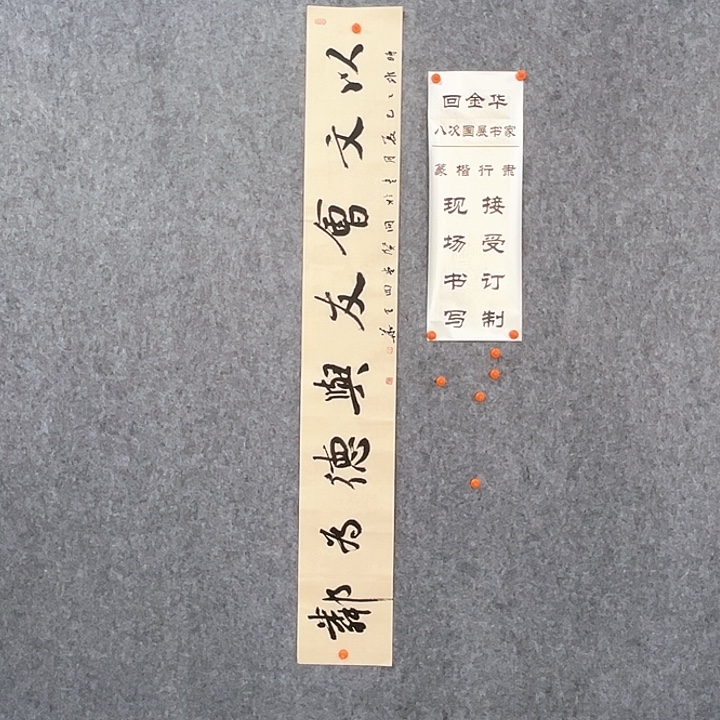 以文會友與德為鄰
乙巳夏月
回金华
八次国展书家
篆楷行隶
现场书写
接受订制